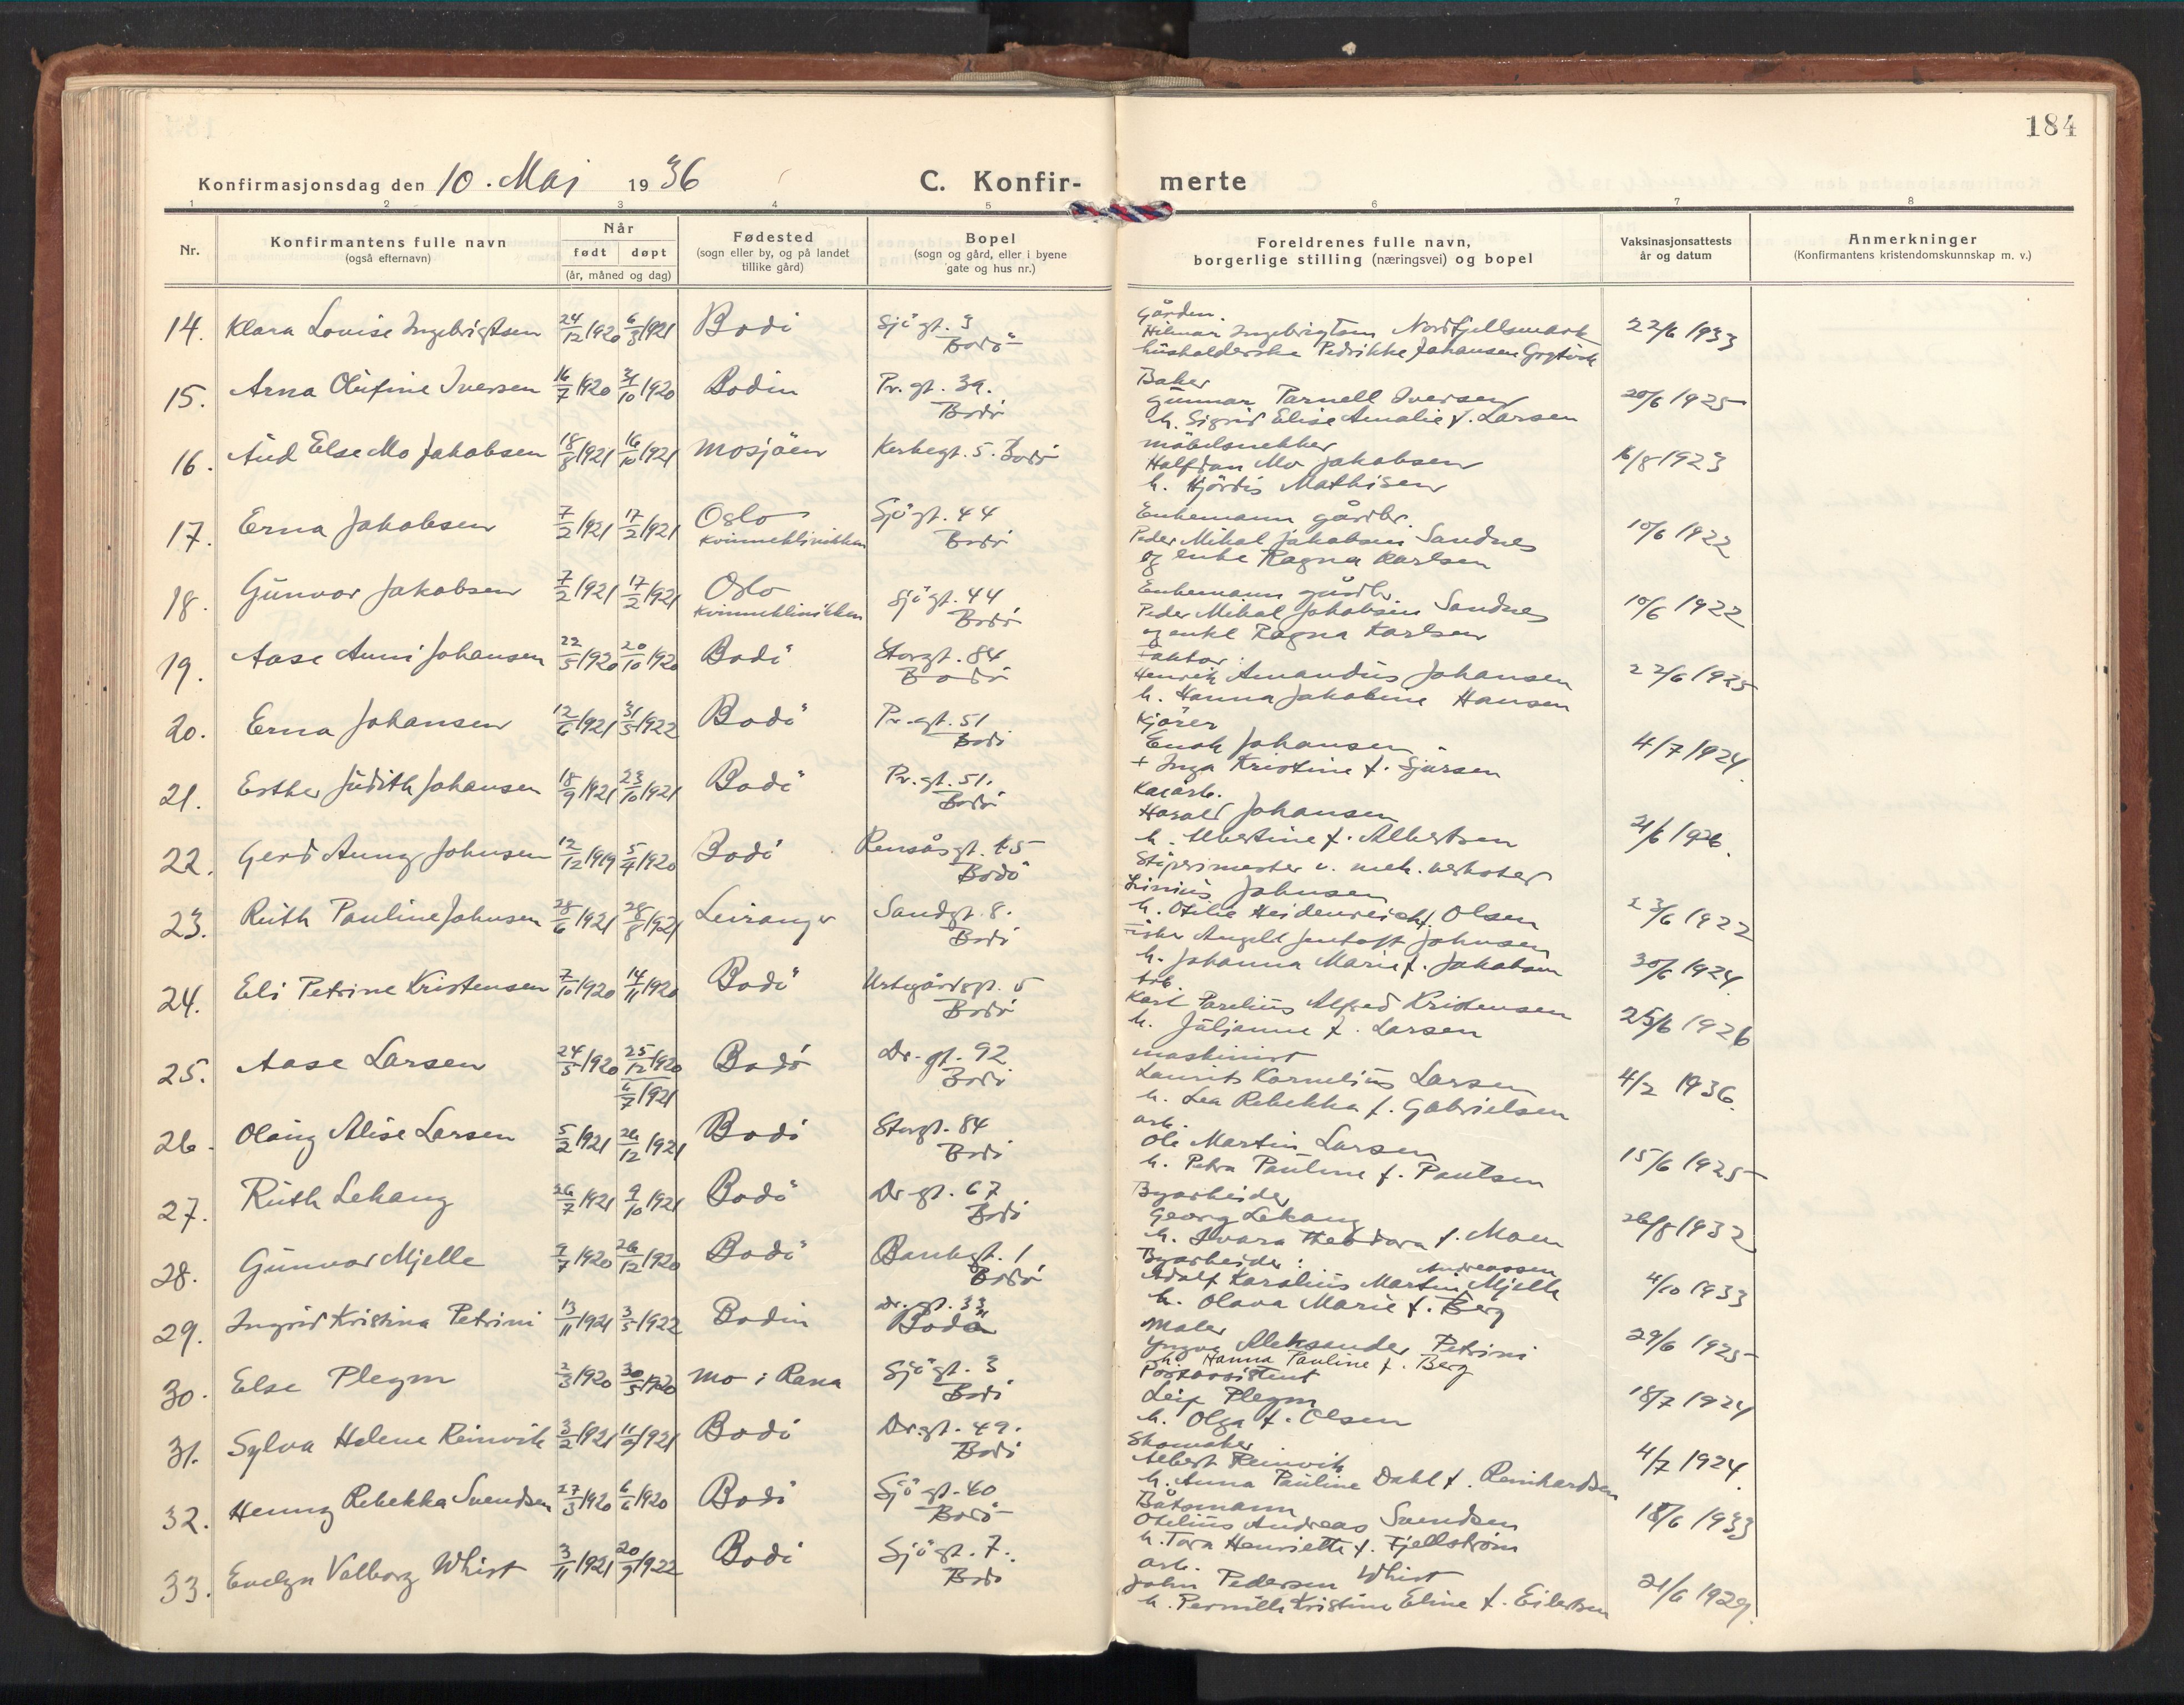 184
Konfirmasjonsdag den 10. Mai 1936
C. Konfir- merte
1 2 3 4 5 6 7 8
Nr.
Konfirmantens fulle navn
(også efternavn)
Når
født døpt
(år, måned og dag)
Fødested
(sogn eller by, og på landet
tillike gård)
Bopel
(sogn og gård, eller i byene
gate og hus nr.)
Foreldrenes fulle navn,
borgerlige stilling (næringsvei) og bopel
Vaksinasjonsattests
år og datum
Anmerkninger
(Konfirmantens kristendomskunnskap m. v.)
14. Klara Lovise Ingebrigtsen 24/12 1920 6/3 1921 Bodö Sjögt. 3
Bodö
Hilmar Ingebrigtsen Nordfjellmark
husholderske Pedrikke Johansen
22/6 1933
15. Arna Olufine Iversen 16/7 1920 31/10 1920 Bodin Pr. gt. 39.
Bodö
Baker
Gunnar Parnell Iversen
h. Sigrid Elise Amalie f. Larsen
20/6 1925
16. Aud Else Mo Jakobsen 18/8 1921 16/10 1921 Mosjöen Kirkegt. 5. Bodö
möbelsnekker
Halfdan Mo Jakobsen
h. Hjördis Mathisen
16/8 1923
17. Erna Jakobsen 7/2 1921 17/2 1921 Oslo
Kvinneklinikken
Sjögt. 44
Bodö
Enkemann gårdbr.
Peder Mikal Jakobsen Sandnes
og enke Ragna Karlsen
10/6 1922
18. Gunvor Jakobsen 7/2 1921 17/2 1921 Oslo
Kvinneklinikken
Sjögt. 44
Bodö
Enkemann gårdbr.
Peder Mikal Jakobsen Sandnes
og enke Ragna Karlsen
10/6 1922
19. Aase Anni Johansen 22/5 1920 20/10 1920 Bodö Storgt. 84
Bodö
Faktor:
Henrik Amandus Johansen
h. Hanna Jakobine Hansen
22/6 1925
20. Erna Johansen 12/6 1921 31/5 1922 Bodö Pr. gt. 51
Bodö
Kjörer
Enok Johansen
+ Inga Kristine f. Sjursen
4/7 1924.
21. Esther Judith Johansen 18/9 1921 23/10 1921 Bodö Pr. gt. 51.
Bodö
Kaiarb.
Harald Johansen
h. Albertine f. Albertsen
21/6 1926.
22. Gerd Aung Johnsen 12/12 1919 5/4 1920 Bodö Rensåsgt. 45
Bodö
Stöperimester v. mek. verksted
Linius Johnsen
h. Otilie Heidenreich f. Olsen
23/6 1922
23. Ruth Pauline Johnsen 28/6 1921 28/8 1921 Leiranger Sandgt. 8.
Bodö
Angell Jentoft Johnsen
h. Johanna Marie f. Jakobsen
30/6 1924.
24. Eli Petrine Kristensen 7/10 1920 14/11 1920 Bodö Urtegårdsgt. 5
Bodö
Karl Parelius Alfred Kristensen
h. Juljanne f. Larsen
25/6 1926
25. Aase Larsen 24/5 1920 25/12 1920
6/7 1921
Bodö Dr. gt. 92
Bodö
maskinist
Laurits Kornelius Larsen
h. Lea Rebekka f. Gabrielsen
4/2 1936.
26. Olaug Alise Larsen 5/2 1921 26/12 1921 Bodö Storgt. 84
Bodö
arb.
Ole Martin Larsen
h. Petra Pauline f. Paulsen
15/6 1925
27. Ruth Lekang 26/7 1921 9/10 1921 Bodö Dr. gt. 67
Bodö
Byarbeider
Georg Lekang
h. Ivara Theodora f. Moen
26/8 1932
28. Gunvor Mjelle 9/7 1920 26/12 1920 Bodö Bankgt. 1
Bodö
Byarbeider: Andreassen
Adolf Karolius Martin Mjelle
h. Olava Marie f. Berg
4/10 1933
29. Ingrid Kristina Petrini 13/11 1921 3/5 1922 Bodin Dr. gt. 33
Bodö
Maler
Yngve Aleksander Petrini
h. Hanna Pauline f. Berg
29/6 1925
30. Else Pleym 2/3 1920 30/5 1920 Mo i Rana Sjögt. 3
Bodö
Postassistent
Leif Pleym
h. Olga f. Olsen
18/7 1924
31. Sylva Helene Reinvik 3/2 1921 11/9 1921 Bodö Dr. gt. 49.
Bodö
Skomaker
Albert Reinvik
h. Anna Pauline Dahl f. Reinhardsen
4/7 1924.
32. Henny Rebekka Svendsen 27/3 1920 6/6 1920 Bodö Sjögt. 40
Bodö
Båtsmann
Otelius Andreas Svendsen
h. Tora Henriette f. Fjellström
18/6 1933
33. Evelyn Valborg Whist 3/11 1921 20/9 1922 Bodö Sjögt. 7.
Bodö
arb.
John Pedersen Whist
h. Pernille Kristine Eline f. Eilertsen
21/6 1929.